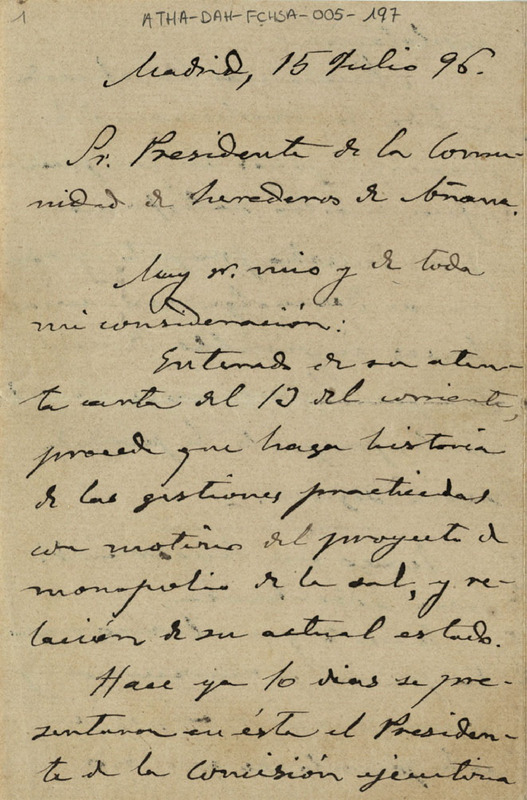 1
ATHA-DAH-FCHSA-005-197
Madrid, 15 Julio 96.
Sr. Presidente de la Comu-
nidad de herederos de Añana.
Muy sr. mio y de toda
mi consideración:
Enterado de su aten-
ta carta del 13 del corriente,
procede que haga historia
de las gestiones practicadas
con motivo del proyecto de
monopolio de la sal, y re-
lación de su actual estado.
Hace ya 10 dias se pre-
sentaron en ésta el Presiden-
te de la Comisión ejecutiva